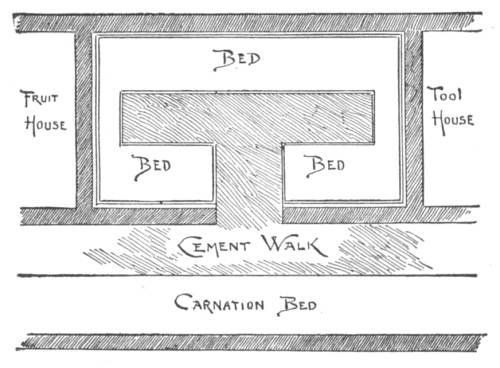 BED
FRUIT
HOUSE
TOOL
HOUSE
BED
BED
CEMENT WALK
CARNATION BED